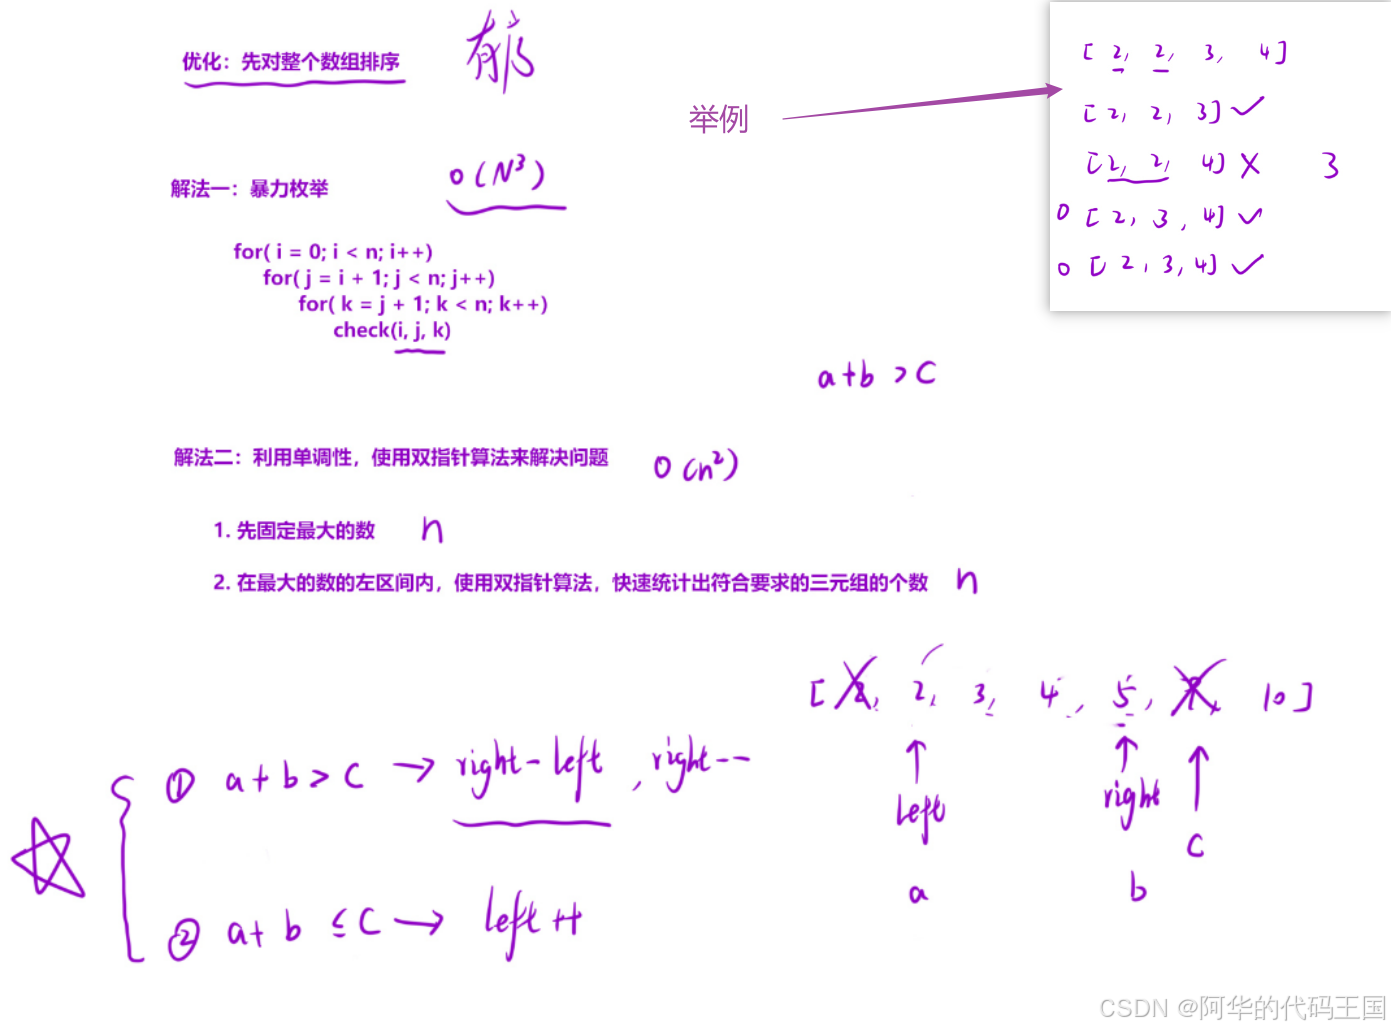 优化：先对整个数组排序
有序
举例
[ 2, 2, 3, 4 ]
[ 2, 2, 3 ] ✓
[ 2, 2, 4 ] X 3
0 [ 2, 3, 4 ] ✓
0 [ 2, 3, 4 ] ✓
解法一：暴力枚举
O(N³)
for( i = 0; i < n; i++)
for( j = i + 1; j < n; j++)
for( k = j + 1; k < n; k++)
check(i, j, k)
a+b > C
解法二：利用单调性，使用双指针算法来解决问题
O(n²)
1. 先固定最大的数 n
2. 在最大的数的左区间内，使用双指针算法，快速统计出符合要求的三元组的个数 n
[ 2, 2, 3, 4, 5, , 10 ]
left
right
C
a
b
① a+b > C → right - left , right--
② a+b ≤ C → left++
CSDN @阿华的代码王国